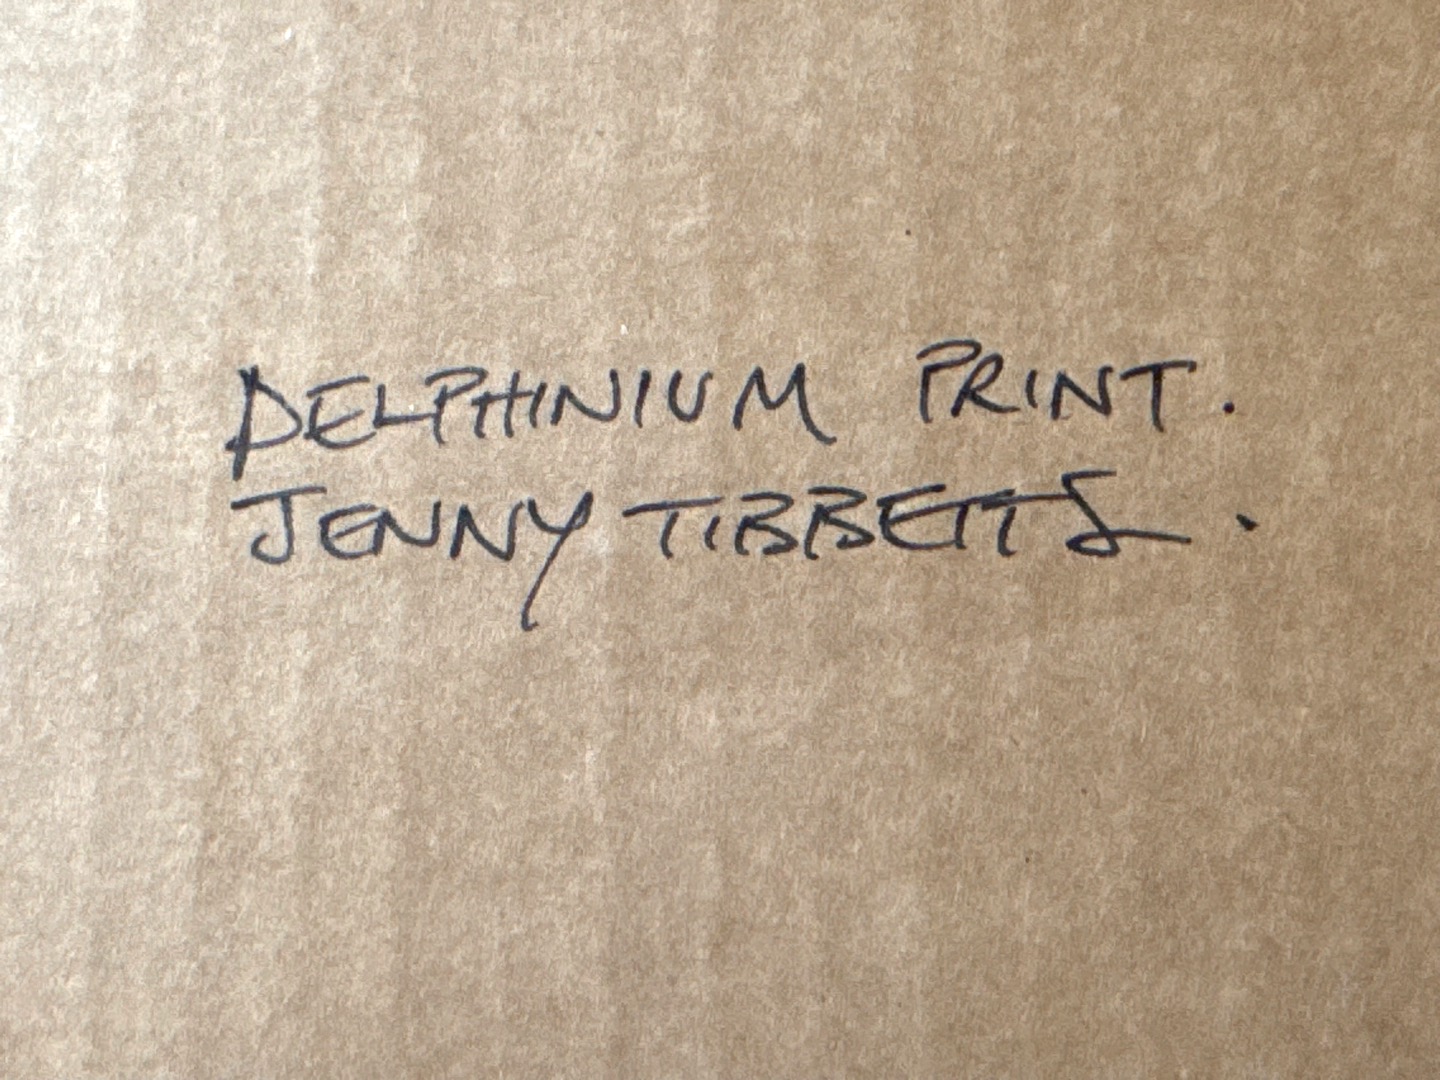 DELPHINIUM PRINT.
JENNY TIBBETTS.